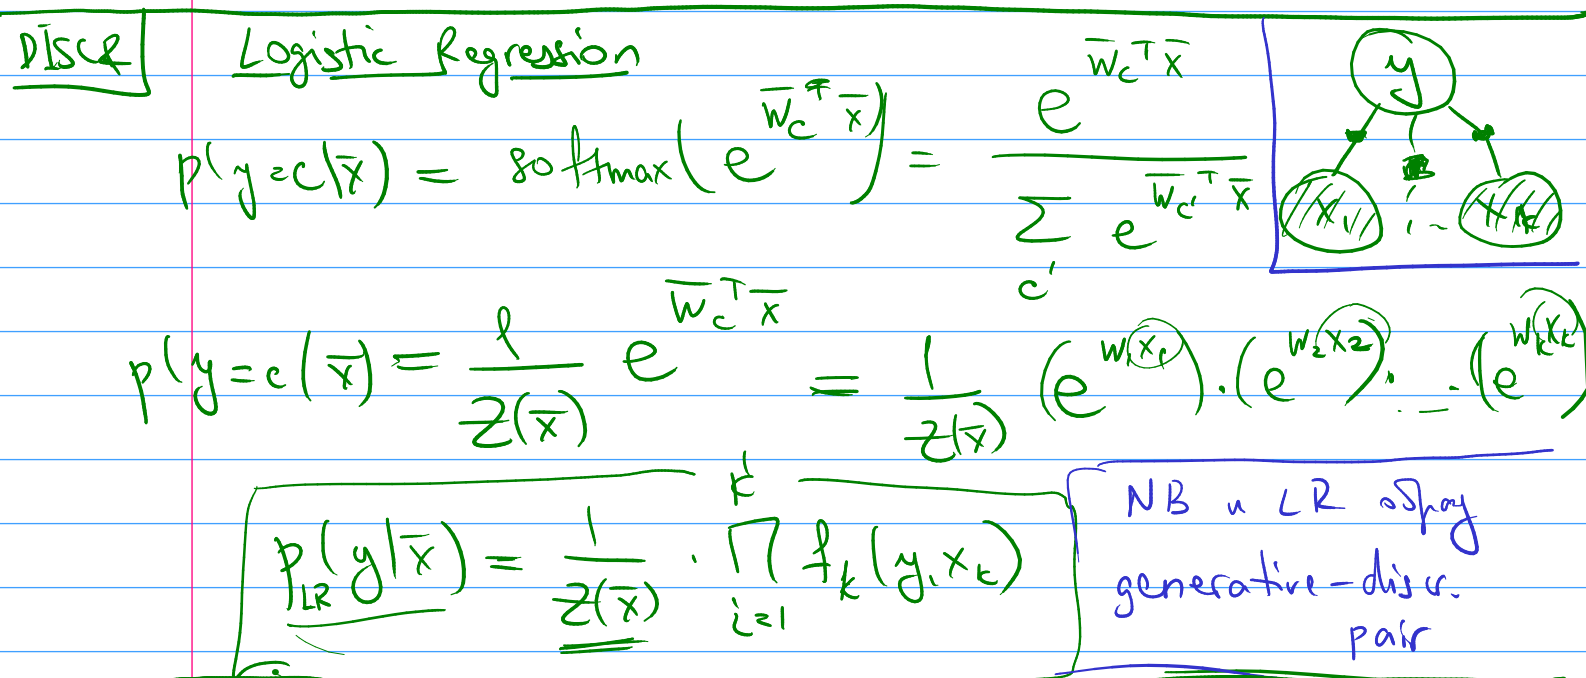 DISCR Logistic Regression
p(y=c|x̄) = softmax(e^{w̄_c^T x̄}) = e^{w̄_c^T x̄} / Σ_{c'} e^{w̄_{c'}^T x̄}
y
x_1 ... x_k
p(y=c|x̄) = 1/Z(x̄) e^{w̄_c^T x̄} = 1/Z(x̄) (e^{w_1 x_1})·(e^{w_2 x_2})· ... ·(e^{w_k x_k})
p_{LR}(y|x̄) = 1/Z(x̄) · ∏_{i=1}^{k} f_k(y, x_k)
NB и LR образ
generative-discr.
pair